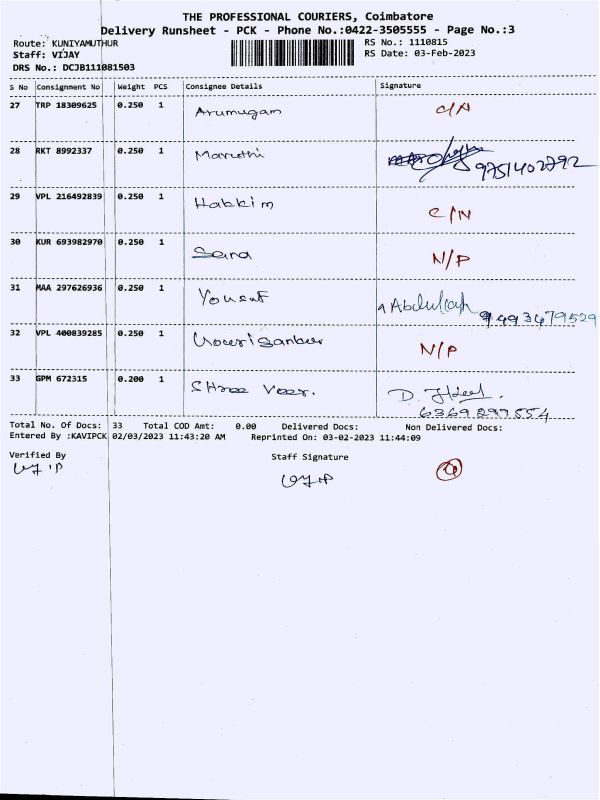 THE PROFESSIONAL COURIERS, Coimbatore
Delivery Runsheet - PCK - Phone No.:0422-3505555 - Page No.:3
Route: KUNIYAMUTHUR RS No.: 1110815
Staff: VIJAY RS Date: 03-Feb-2023
DRS No.: DCJB111081503
S No Consignment No Weight PCS Consignee Details Signature
27 TRP 18309625 0.250 1 Arumugam C/N
28 RKT 8992337 0.250 1 Maruthi 9751402792
29 VPL 216492839 0.250 1 Hakkim C/N
30 KUR 693982970 0.250 1 Sara N/P
31 MAA 297626936 0.250 1 Yousuf Abdullah
9493479529
32 VPL 400839285 0.250 1 Gowrisankar N/P
33 GPM 672315 0.200 1 Shree Veer. D.
6369297554
Total No. Of Docs: 33 Total COD Amt: 0.00 Delivered Docs: Non Delivered Docs:
Entered By :KAVIPCK 02/03/2023 11:43:20 AM Reprinted On: 03-02-2023 11:44:09
Verified By Staff Signature